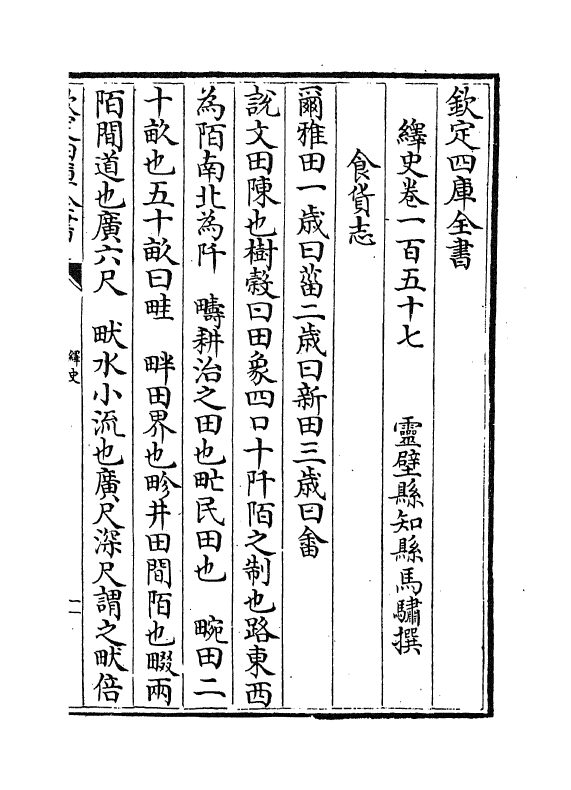 欽定四庫全書
繹史卷一百五十七　　靈璧縣知縣馬驌撰
食貨志
爾雅田一歳曰菑二歳曰新田三歳曰畬
說文田陳也樹穀曰田象四口十阡陌之制也路東西
為陌南北為阡　疇耕治之田也甿民田也　畹田二
十畝也五十畝曰畦　畔田界也畛井田間陌也畷兩
陌間道也廣六尺　畎水小流也廣尺深尺謂之畎倍
欽定四庫全書
繹史
一